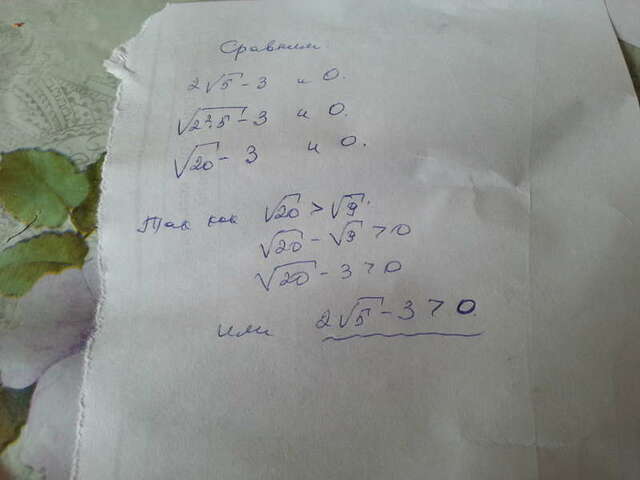 Сравним
2√5 - 3 и 0.
√2²·5 - 3 и 0.
√20 - 3 и 0.
Так как √20 > √9.
√20 - √9 > 0
√20 - 3 > 0
или 2√5 - 3 > 0.